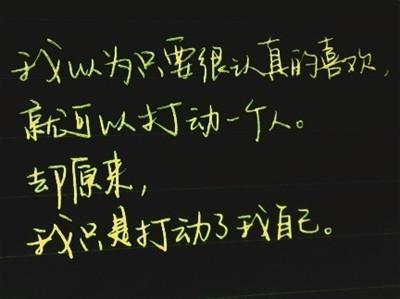 我以为只要很认真的喜欢,
就可以打动一个人。
却原来,
我只是打动了我自己。